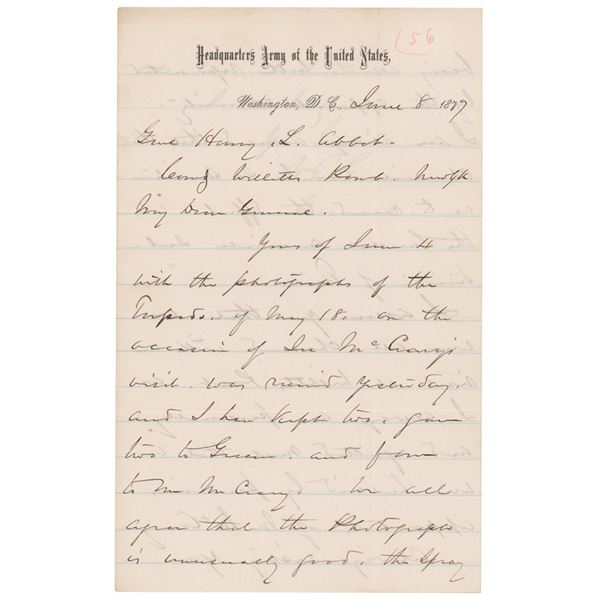 56
Headquarters Army of the United States,
Washington, D. C., June 8 1877
Genl Henry L. Abbot-
Comdg Willetts Point. New York
My Dear General.
Yours of June 4
with the photographs of the
Torpedo. of May 18. on the
occasion of Sec McCrary's
visit. was recd yesterday.
and I have kept two. gave
two to Green. and four
to Mr McCrary. We all
agree that the Photograph
is unusually good. the spray